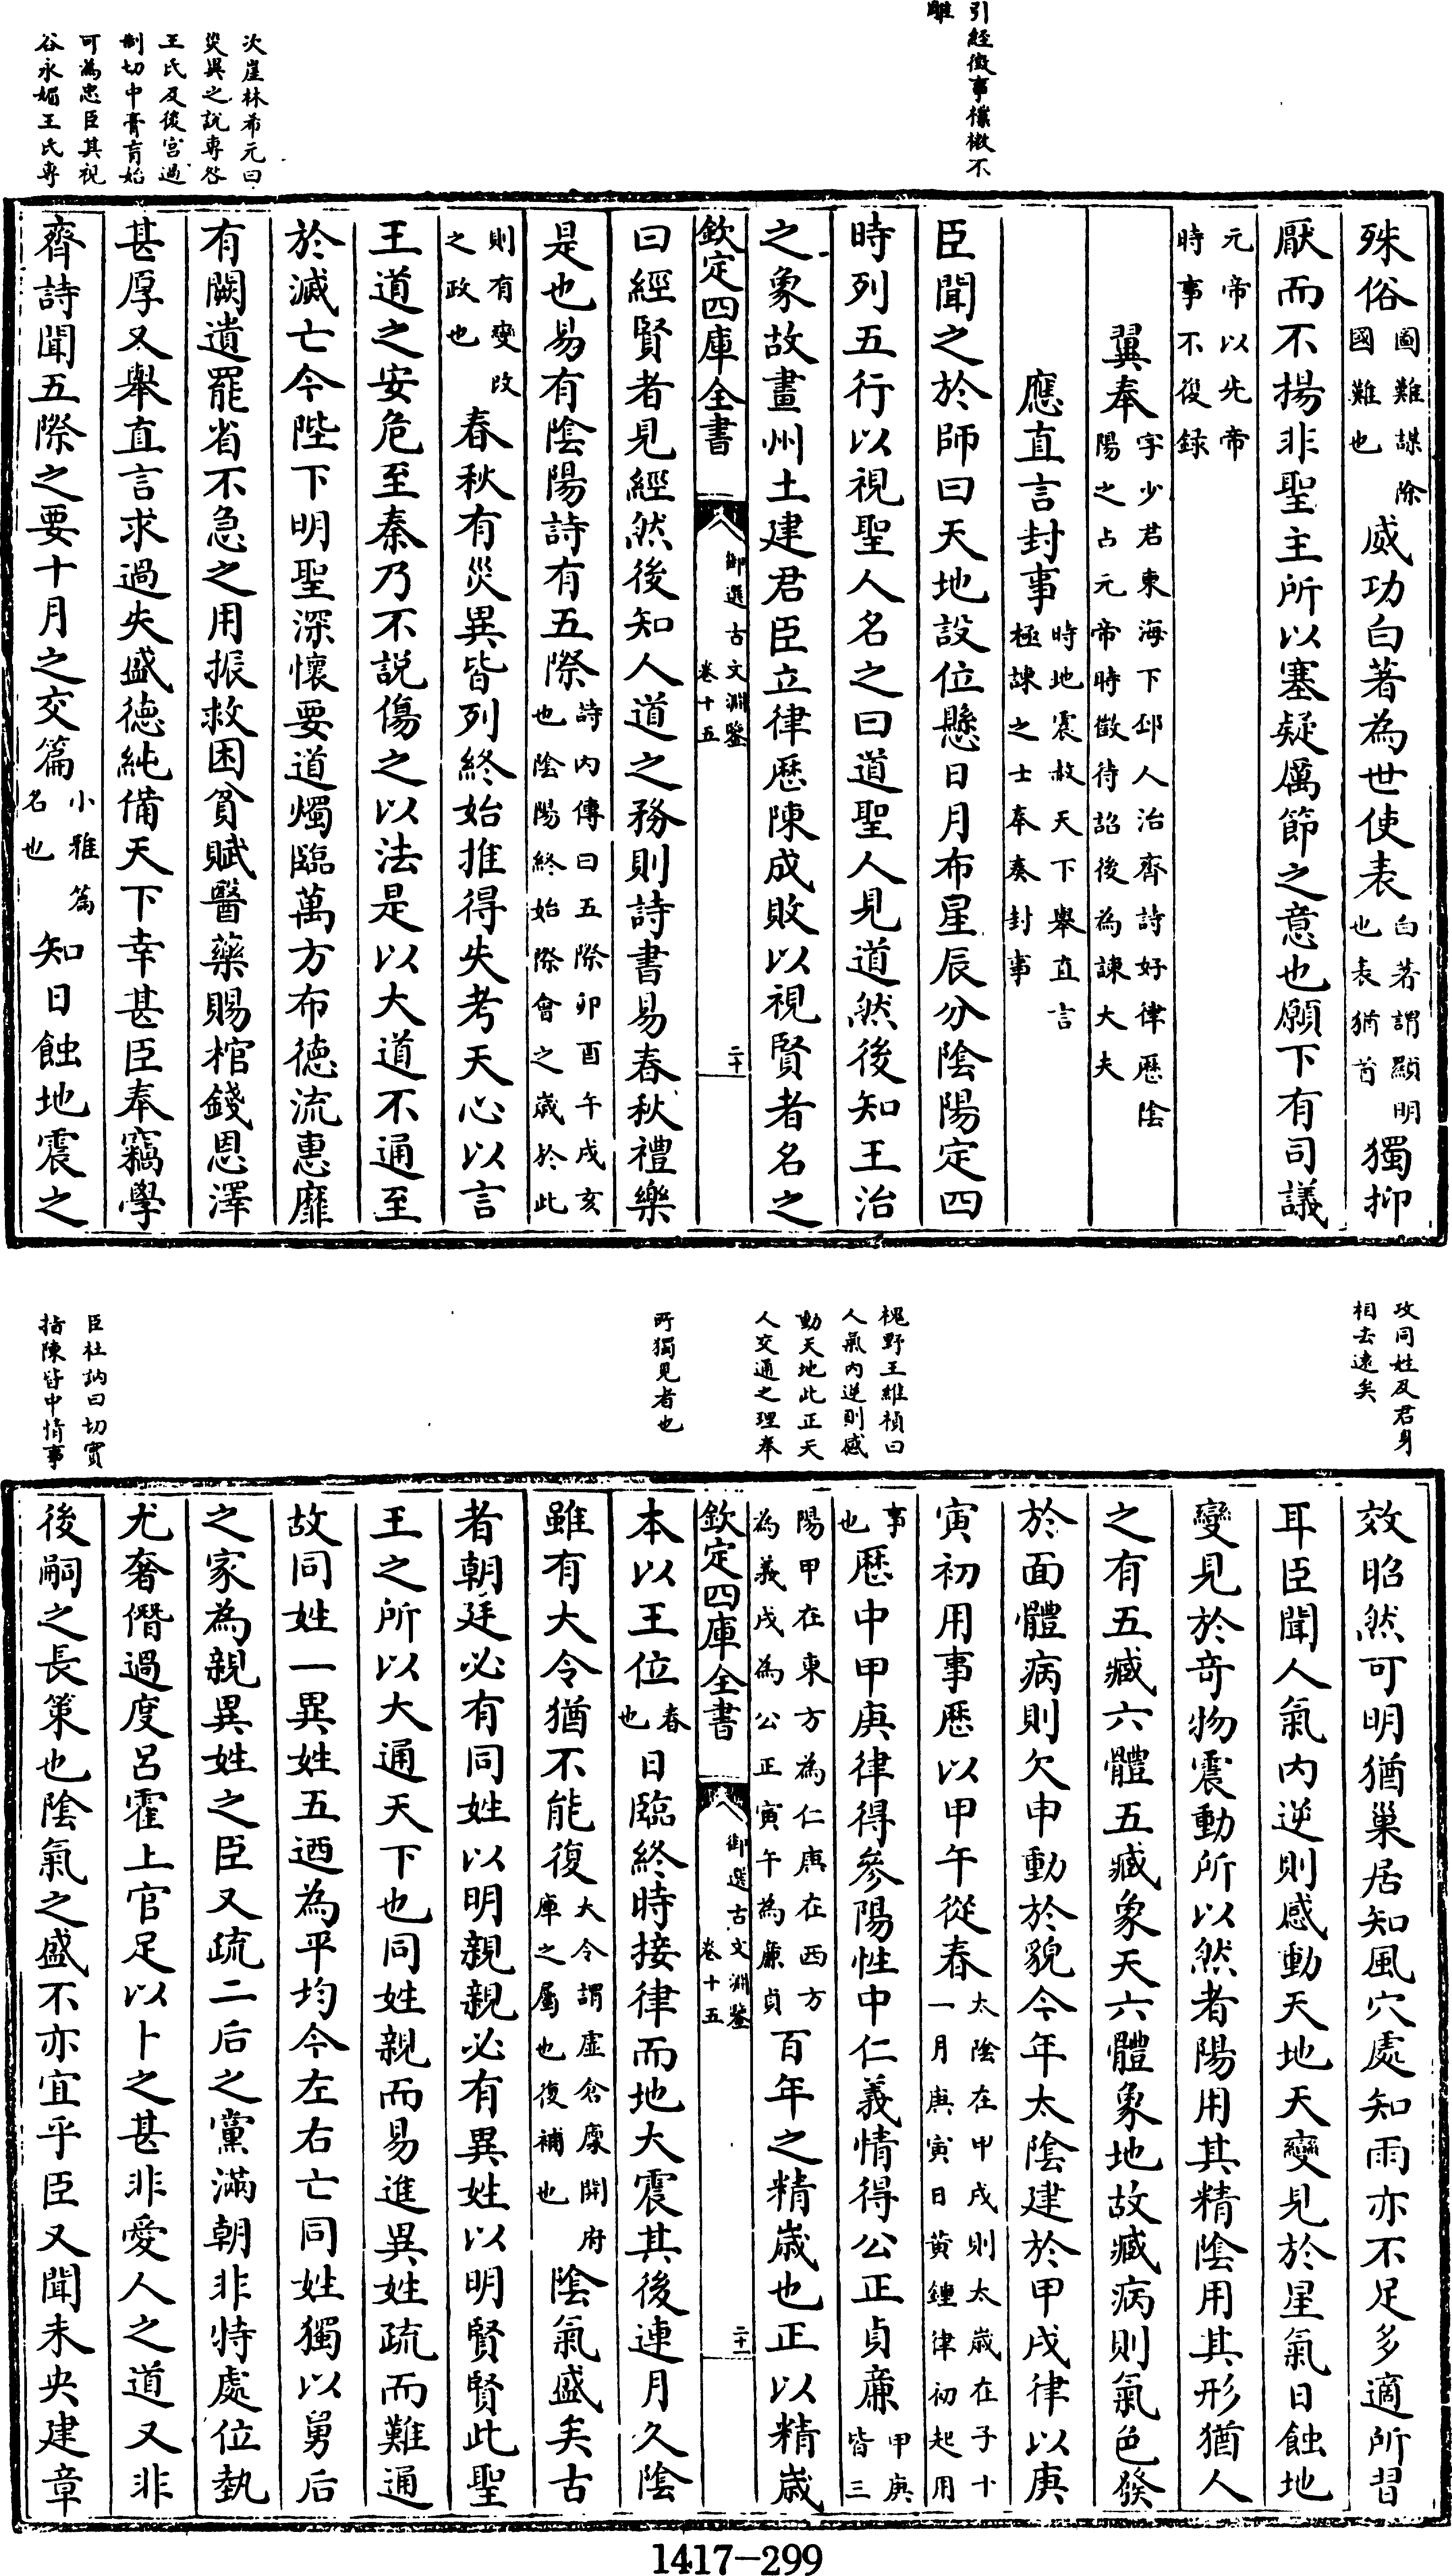 引經徵事樸樕不
雕
次崖林希元曰
災異之說專咎
王氏及後宮過
制切中膏肓始
可為忠臣其視
谷永媚王氏專
殊俗圖難謀除國難也威功白著為世使表白著謂顯明也表猶首獨抑
厭而不揚非聖主所以塞疑厲節之意也願下有司議
元帝以先帝時事不復録
翼奉字少君東海下邳人治齊詩好律歷陰陽之占元帝時徵待詔後為諫大夫
應直言封事時地震赦天下舉直言極諫之士奉奏封事
臣聞之於師曰天地設位懸日月布星辰分陰陽定四
時列五行以視聖人名之曰道聖人見道然後知王治
之象故畫州土建君臣立律歷陳成敗以視賢者名之
欽定四庫全書 御選古文淵鑒卷十五 二十
曰經賢者見經然後知人道之務則詩書易春秋禮樂
是也易有陰陽詩有五際詩內傳曰五際卯酉午戌亥也陰陽終始際會之歲於此
則有變改之政也春秋有災異皆列終始推得失考天心以言
王道之安危至秦乃不說傷之以法是以大道不通至
於滅亡今陛下明聖深懷要道燭臨萬方布德流惠靡
有闕遺罷省不急之用振救困貧賦醫藥賜棺錢恩澤
甚厚又舉直言求過失盛德純備天下幸甚臣奉竊學
齊詩聞五際之要十月之交篇小雅篇名也知日蝕地震之
攻同姓及君身
相去遠矣
槐野王維楨曰
人氣內逆則感
動天地此正天
人交通之理奉
所獨見者也
臣杜訥曰切實
指陳皆中情事
效昭然可明猶巢居知風穴處知雨亦不足多適所習
耳臣聞人氣內逆則感動天地天變見於星氣日蝕地
變見於奇物震動所以然者陽用其精陰用其形猶人
之有五臧六體五臧象天六體象地故臧病則氣色發
於面體病則欠申動於貌今年太陰建於甲戌律以庚
寅初用事歷以甲午從春太陰在甲戌則太歲在子十一月庚寅日黃鍾律初起用
事也歷中甲庚律得參陽性中仁義情得公正貞廉甲庚皆三
陽甲在東方為仁庚在西方為義戌為公正寅午為廉貞百年之精歲也正以精歲
欽定四庫全書 御選古文淵鑒卷十五 二十一
本以王位春也日臨終時接律而地大震其後連月久陰
雖有大令猶不能復大令謂虛倉廩開府庫之屬也復補也陰氣盛矣古
者朝廷必有同姓以明親親必有異姓以明賢賢此聖
王之所以大通天下也同姓親而易進異姓疏而難通
故同姓一異姓五迺為平均今左右亡同姓獨以舅后
之家為親異姓之臣又疏二后之黨滿朝非特處位埶
尤奢僭過度呂霍上官足以卜之甚非愛人之道又非
後嗣之長策也陰氣之盛不亦宜乎臣又聞未央建章
1417-299